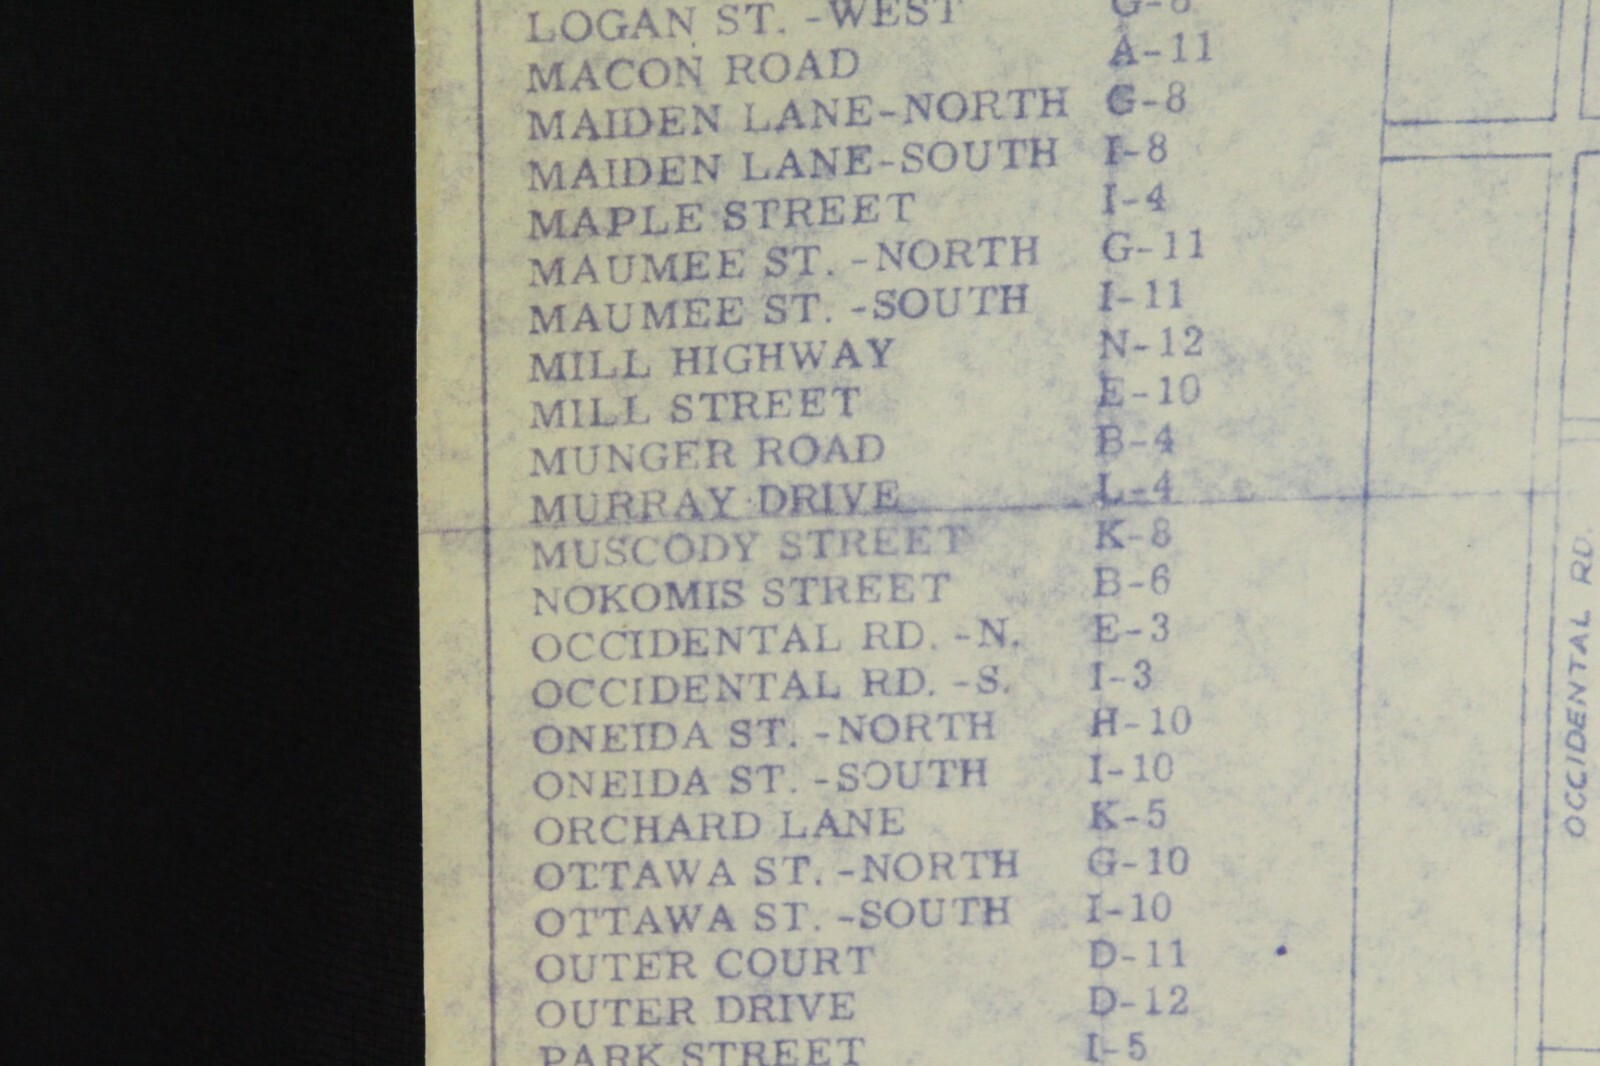 LOGAN ST. -WEST G-8
MACON ROAD A-11
MAIDEN LANE-NORTH G-8
MAIDEN LANE-SOUTH I-8
MAPLE STREET I-4
MAUMEE ST. -NORTH G-11
MAUMEE ST. -SOUTH I-11
MILL HIGHWAY N-12
MILL STREET E-10
MUNGER ROAD B-4
MURRAY DRIVE L-4
MUSCODY STREET K-8
NOKOMIS STREET B-6
OCCIDENTAL RD. -N. E-3
OCCIDENTAL RD. -S. I-3
ONEIDA ST. -NORTH H-10
ONEIDA ST. -SOUTH I-10
ORCHARD LANE K-5
OTTAWA ST. -NORTH G-10
OTTAWA ST. -SOUTH I-10
OUTER COURT D-11
OUTER DRIVE D-12
PARK STREET I-5
OCCIDENTAL RD.